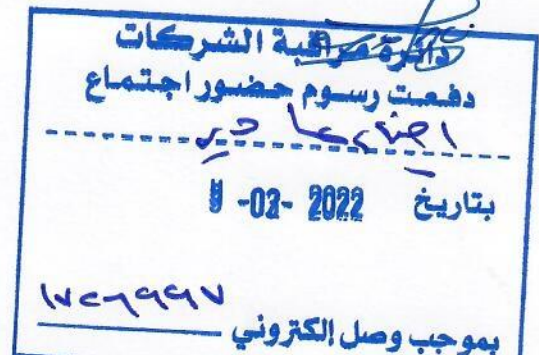 دائرة مراقبة الشركات
دفعت رسوم حضور اجتماع
اجتماع عادي
بتاريخ -03- 2022
١٧٢٦٩٩٧
بموجب وصل إلكتروني